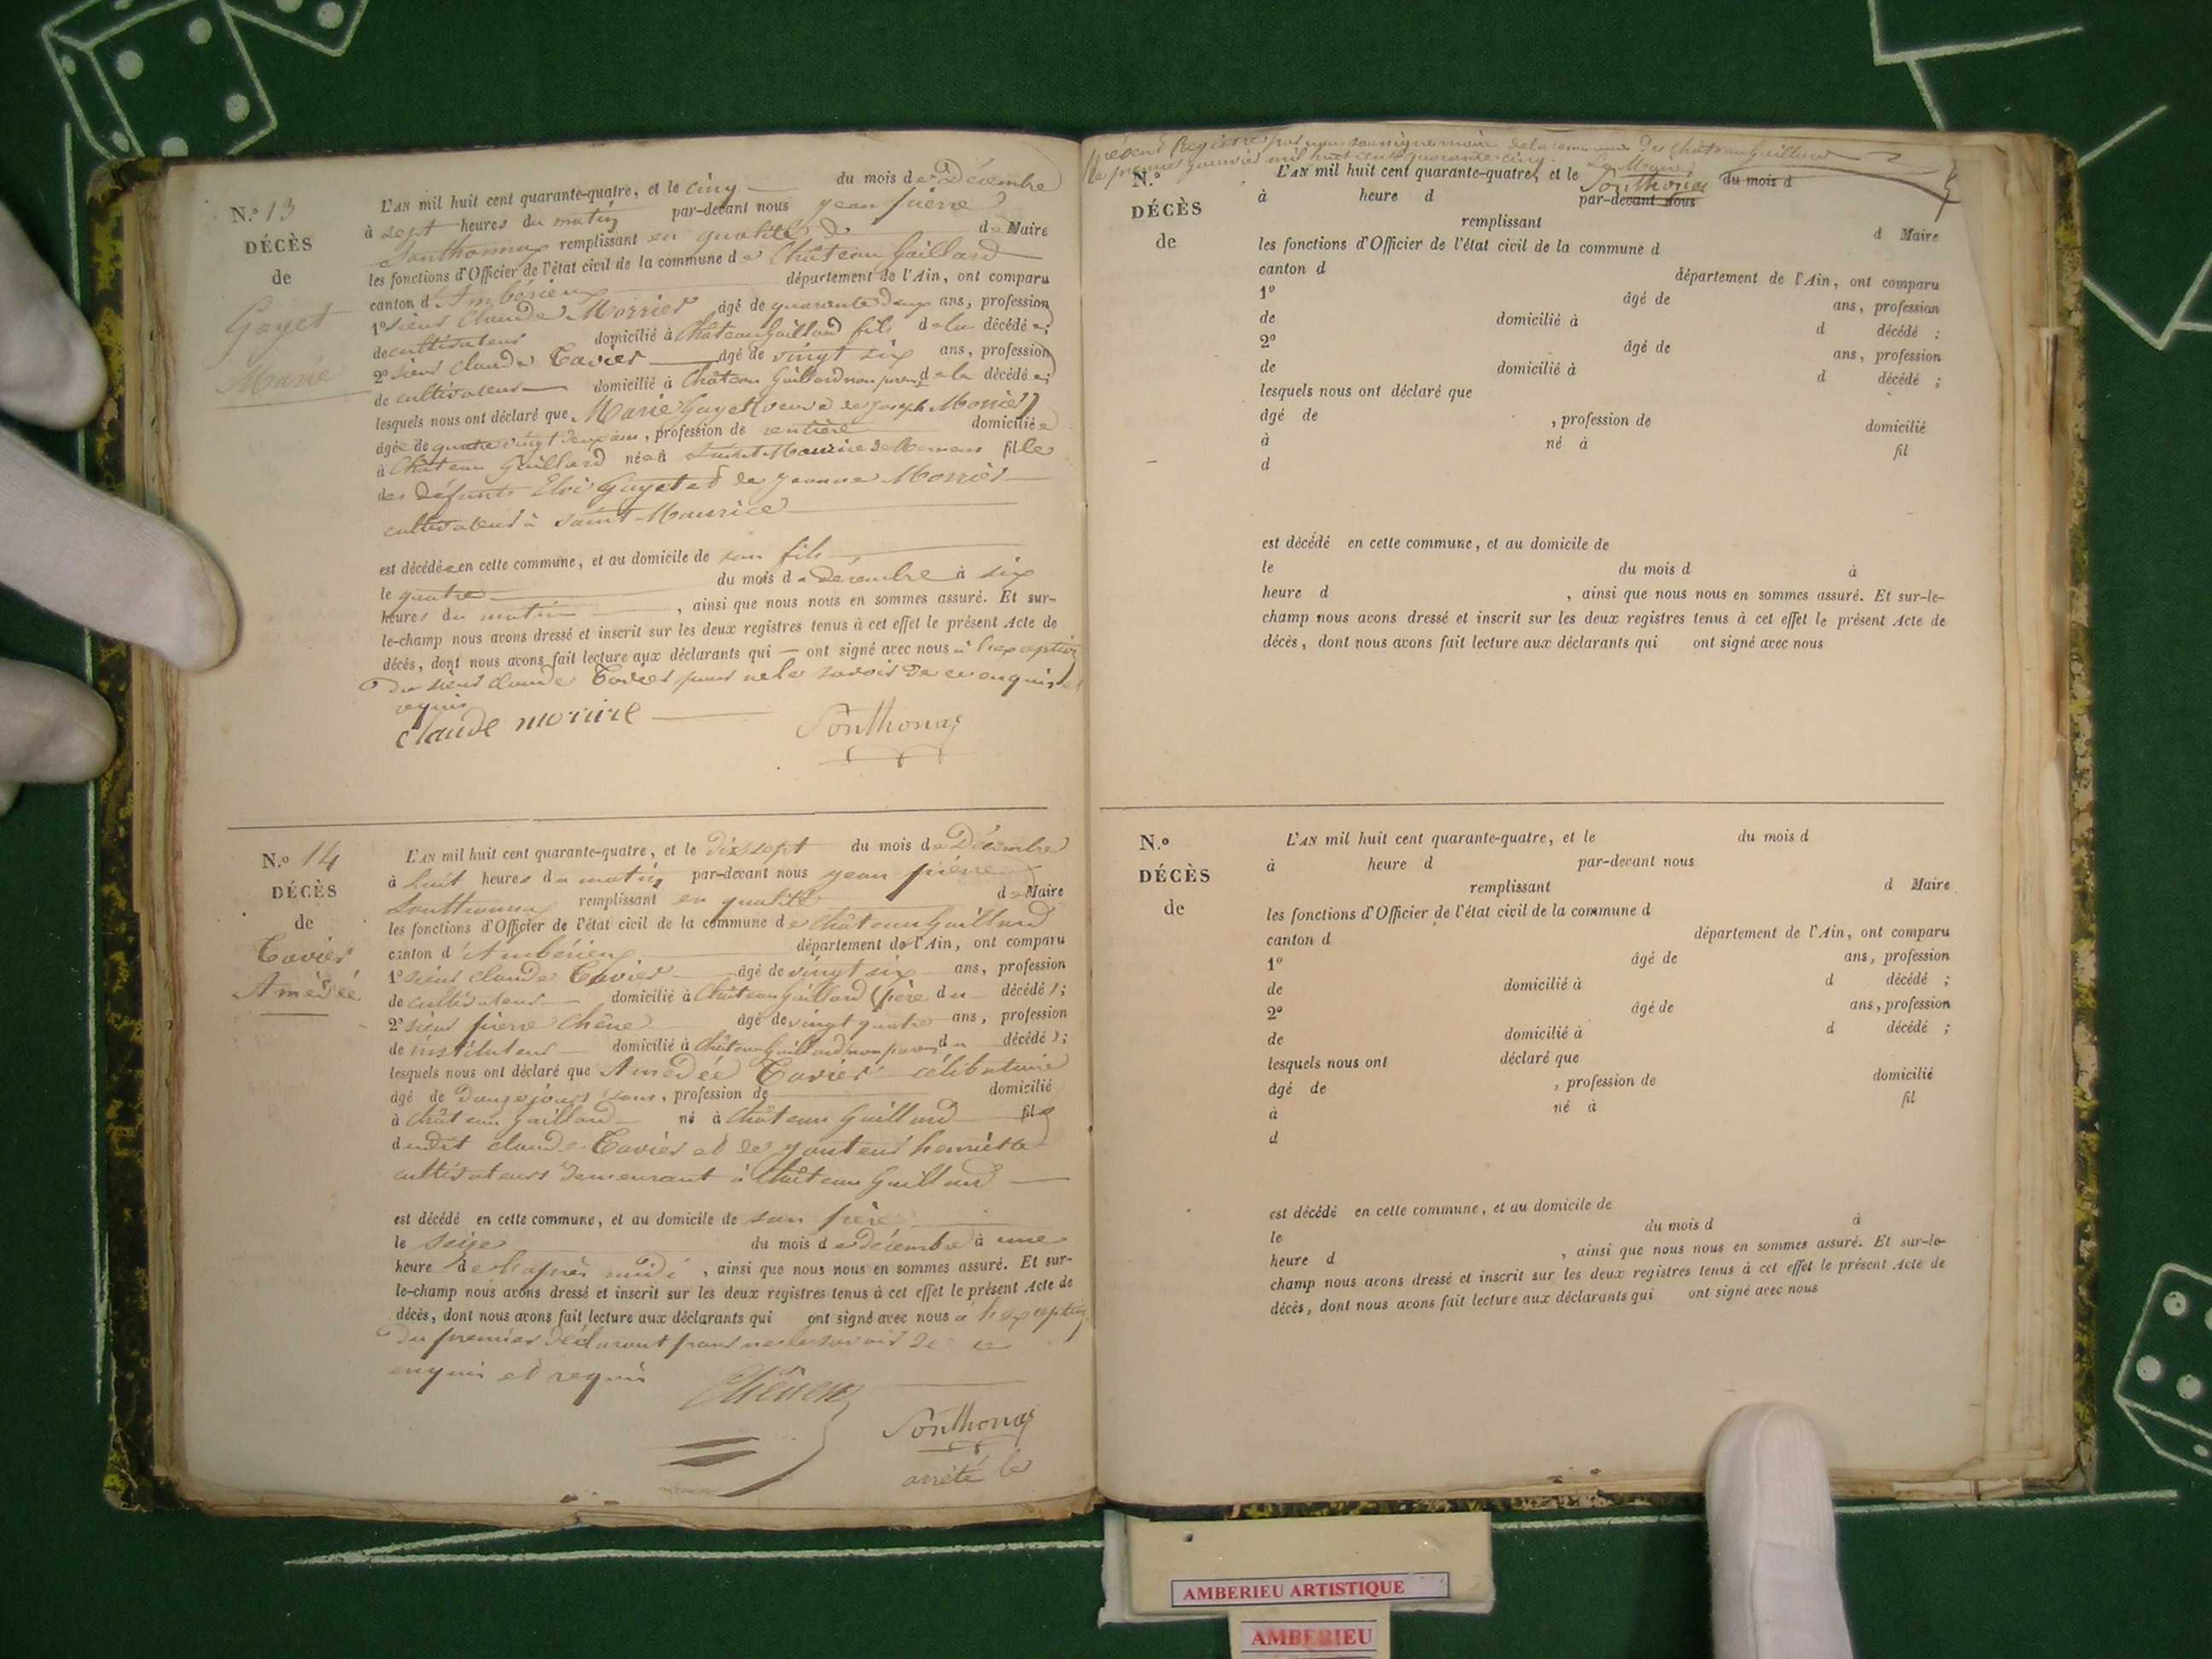 N.º 13
DÉCÈS
de
Gayet
Marie
L'AN mil huit cent quarante-quatre, et le cinq du mois de Décembre
à sept heures du matin par-devant nous jean pierre
Sonthonnax remplissant en qualité de Maire
les fonctions d'Officier de l'état civil de la commune de Château Gaillard
canton d'Ambérieux département de l'Ain, ont comparu
1º sieur Claude Morrier âgé de quarante deux ans, profession
de cultivateur domicilié à Château Gaillard fils de la décédée;
2º sieur Claude Tavier âgé de vingt six ans, profession
de cultivateur domicilié à Château Gaillard non parent de la décédée;
lesquels nous ont déclaré que Marie Gayet (veuve de joseph Morrier)
âgée de quatre vingt deux ans, profession de rentière domiciliée
à Château Gaillard née à Saint Maurice de Remens fille
des défunts Eloi Gayet et de jeanne Morrier
cultivateurs à Saint-Maurice
est décédée en cette commune, et au domicile de son fils
le quatre du mois de décembre à six
heures du matin, ainsi que nous nous en sommes assuré. Et sur-
le-champ nous avons dressé et inscrit sur les deux registres tenus à cet effet le présent Acte de
décès, dont nous avons fait lecture aux déclarants qui — ont signé avec nous à l'exception
du sieur Claude Tavier pour ne le savoir de ce enquis et
requis
claude morrire Sonthonax
N.º 14
DÉCÈS
de
Tavier
Amédée
L'AN mil huit cent quarante-quatre, et le dix sept du mois de Décembre
à huit heures du matin par-devant nous jean pierre
Sonthonnax remplissant en qualité de Maire
les fonctions d'Officier de l'état civil de la commune de Château Gaillard
canton d'Ambérieux département de l'Ain, ont comparu
1º sieur Claude Tavier âgé de vingt six ans, profession
de cultivateur domicilié à Château Gaillard (père du décédé);
2º sieur pierre Chêne âgé de vingt quatre ans, profession
de instituteur domicilié à Château Gaillard (non parent du décédé);
lesquels nous ont déclaré que Amédée Tavier célibataire
âgé de douze jours sans, profession de domicilié
à Château Gaillard né à Château Gaillard fils
dudit claude Tavier et de henriette
cultivateurs demeurant à Château Gaillard
est décédé en cette commune, et au domicile de son père
le seize du mois de décembre à une
heure de l'après midi, ainsi que nous nous en sommes assuré. Et sur-
le-champ nous avons dressé et inscrit sur les deux registres tenus à cet effet le présent Acte de
décès, dont nous avons fait lecture aux déclarants qui ont signé avec nous à l'exception
du premier déclarant pour ne le savoir de ce
enquis et requis
Chêne
Sonthonax
arrêté le
présent Registre par nous soussigné maire de la commune de Château Gaillard
le premier janvier mil huit cent quarante cinq.
Le Maire,
Sonthonax
N.º
DÉCÈS
de
L'AN mil huit cent quarante-quatre, et le du mois d
à heure d par-devant nous
remplissant d Maire
les fonctions d'Officier de l'état civil de la commune d
canton d département de l'Ain, ont comparu
1º âgé de ans, profession
de domicilié à d décédé :
2º âgé de ans, profession
de domicilié à d décédé ;
lesquels nous ont déclaré que
âgé de , profession de domicilié
à né à fil
d
est décédé en cette commune, et au domicile de
le du mois d à
heure d , ainsi que nous nous en sommes assuré. Et sur-le-
champ nous avons dressé et inscrit sur les deux registres tenus à cet effet le présent Acte de
décès, dont nous avons fait lecture aux déclarants qui ont signé avec nous
N.º
DÉCÈS
de
L'AN mil huit cent quarante-quatre, et le du mois d
à heure d par-devant nous
remplissant d Maire
les fonctions d'Officier de l'état civil de la commune d
canton d département de l'Ain, ont comparu
1º âgé de ans, profession
de domicilié à d décédé ;
2º âgé de ans, profession
de domicilié à d décédé ;
lesquels nous ont déclaré que
âgé de , profession de domicilié
à né à fil
d
est décédé en cette commune, et au domicile de
le du mois d à
heure d , ainsi que nous nous en sommes assuré. Et sur-le-
champ nous avons dressé et inscrit sur les deux registres tenus à cet effet le présent Acte de
décès, dont nous avons fait lecture aux déclarants qui ont signé avec nous
AMBERIEU ARTISTIQUE
AMBERIEU